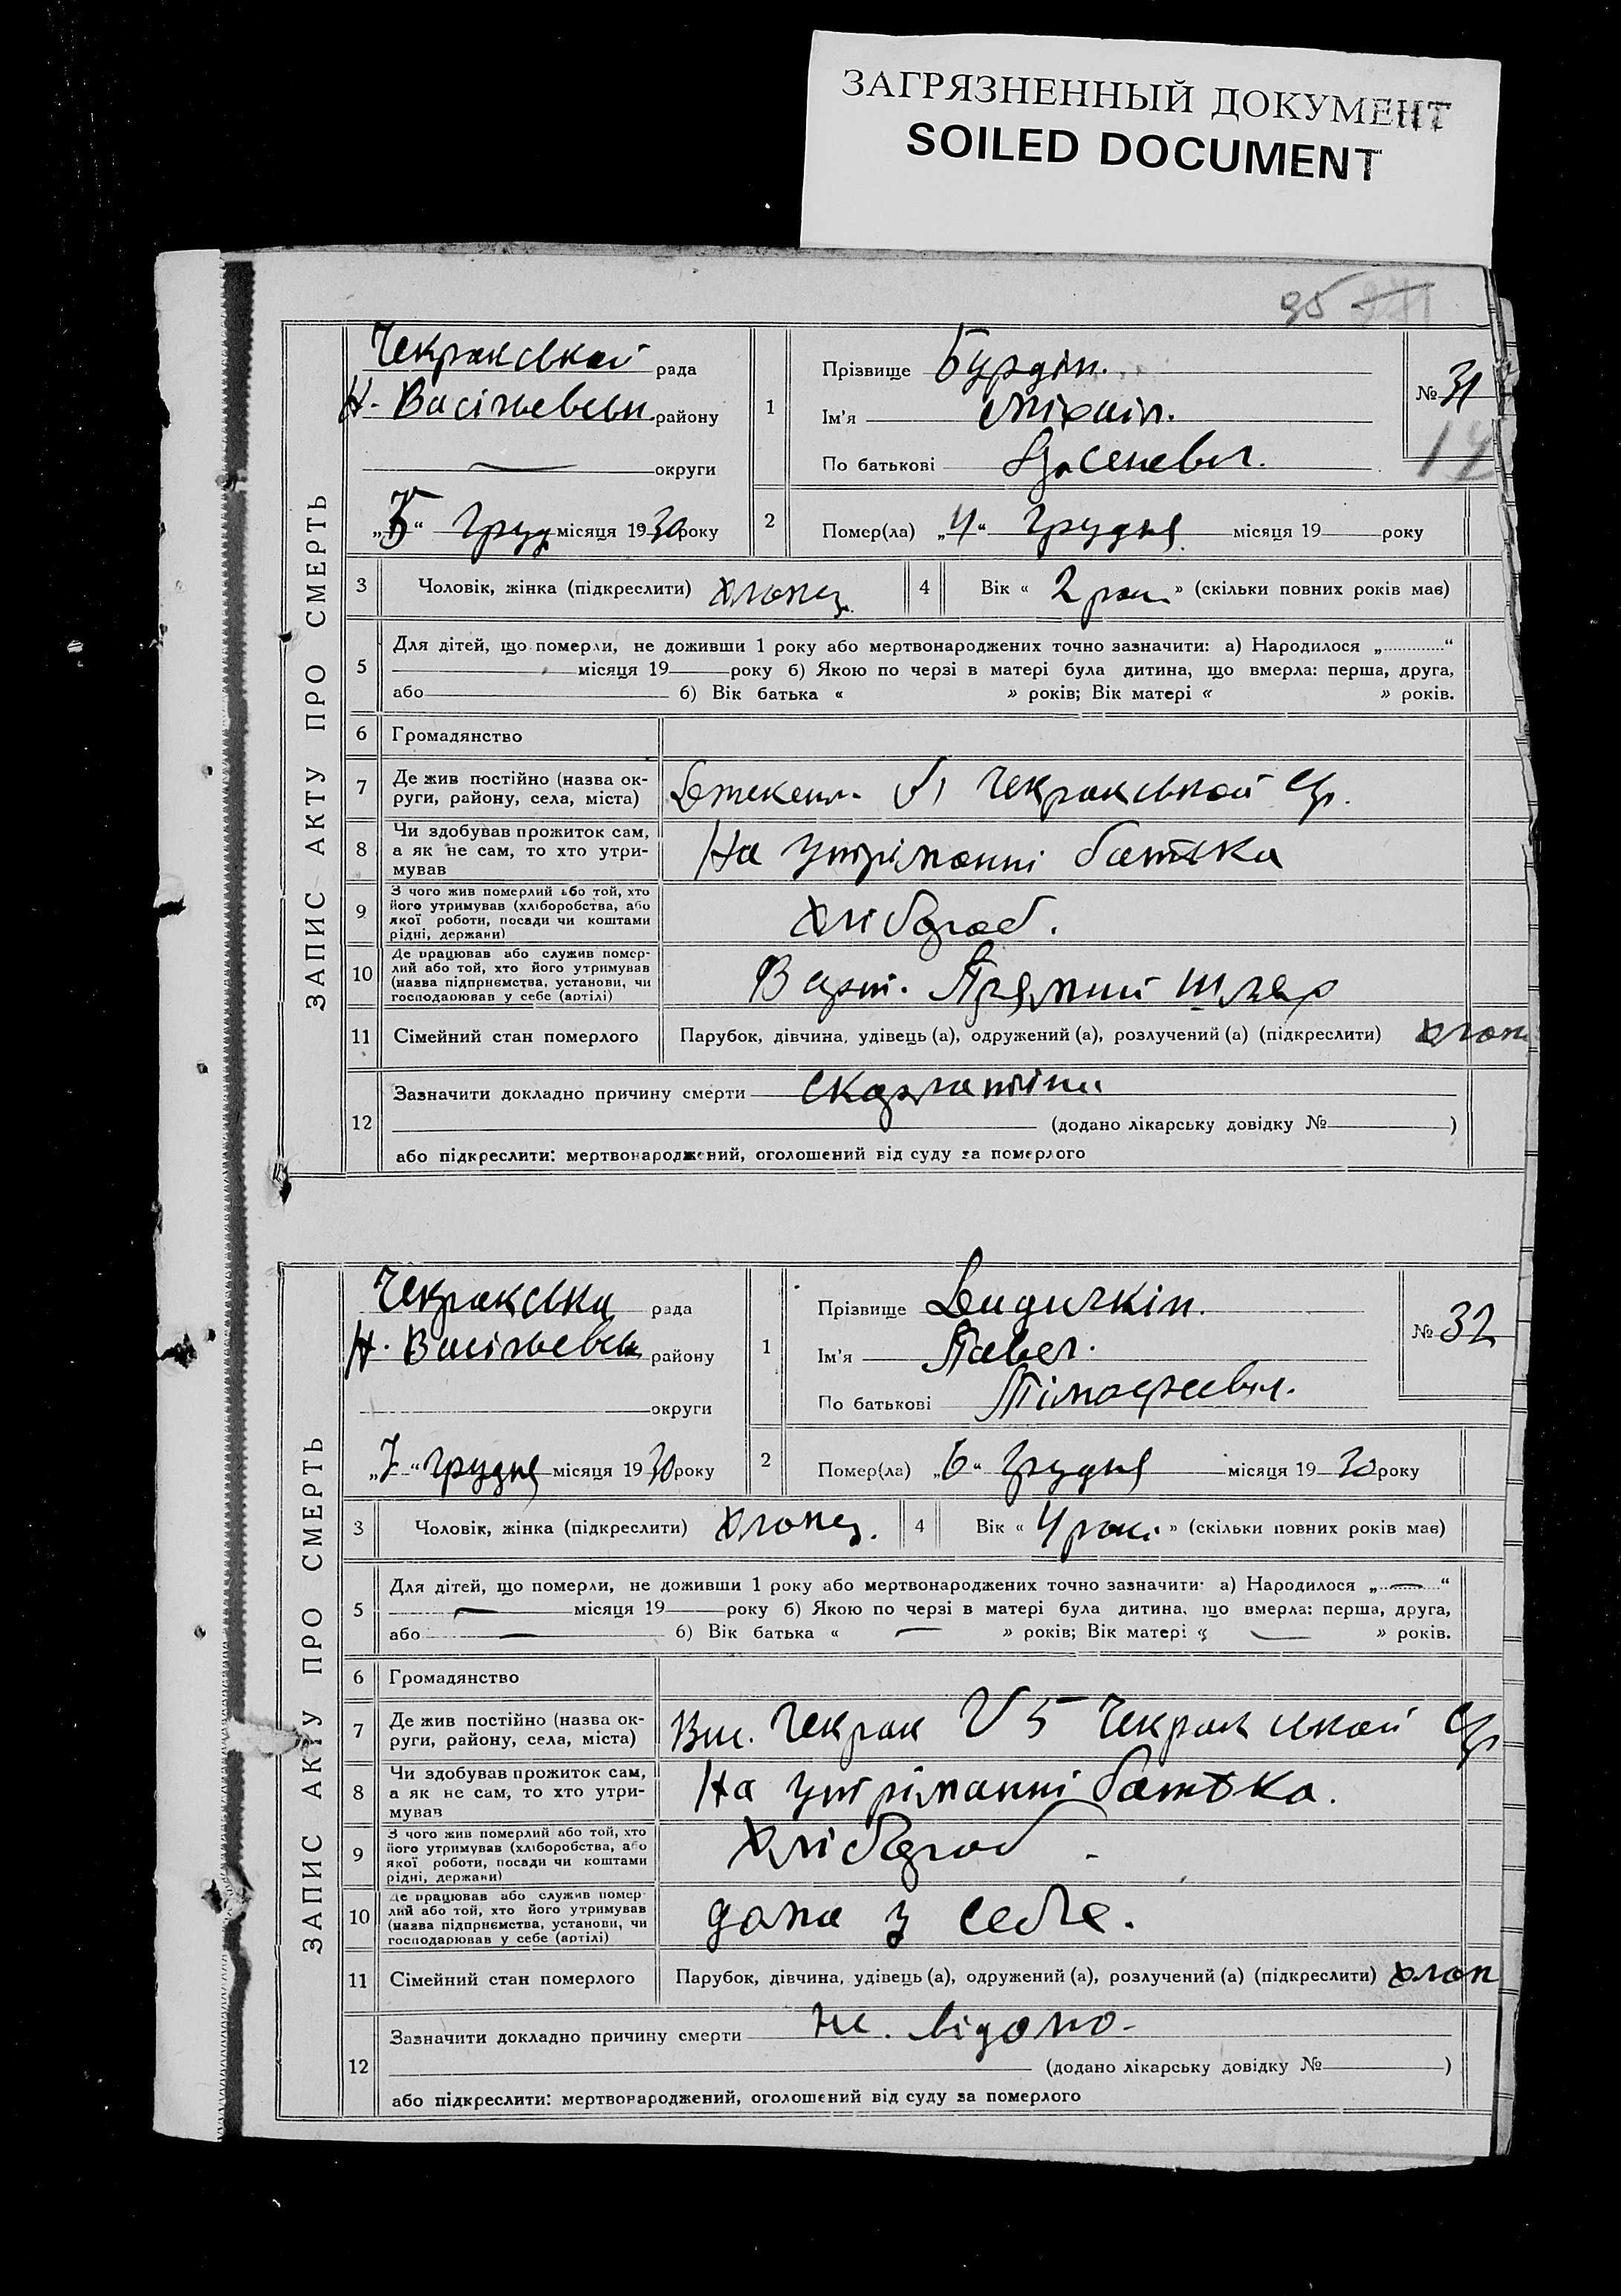 ЗАГРЯЗНЕННЫЙ ДОКУМЕНТ
SOILED DOCUMENT
95
ЗАПИС АКТУ ПРО СМЕРТЬ
Чекракської рада
Н-Васільевськ. району
округи
„5“ Груд місяця 1930 року
1
Прізвище Бурдін.
Ім'я Міхаіл.
По батькові
№ 31
2
Помер(ла) „4“ Грудня місяця 19 року
3 Чоловік, жінка (підкреслити) хлопец.
4 Вік « 2 роки » (скільки повних років має)
5 Для дітей, що померли, не доживши 1 року або мертвонароджених точно зазначити: а) Народилося „ “
місяця 19 року б) Якою по черзі в матері була дитина, що вмерла: перша, друга,
або б) Вік батька « » років; Вік матері « » років.
6 Громадянство
7 Де жив постійно (назва ок-
руги, району, села, міста) Чекракської
8 Чи здобував прожиток сам,
а як не сам, то хто утри-
мував На утріманні батька
9 З чого жив померлий або той, хто
його утримував (хліборобства, або
якої роботи, посади чи коштами
рідні, держави) хлібороб.
10 Де працював або служив помер-
лий або той, хто його утримував
(назва підприємства, установи, чи
господарював у себе (артілі) В арт. Прямий шлях
11 Сімейний стан померлого Парубок, дівчина, удівець (а), одружений (а), розлучений (а) (підкреслити) хлоп
12 Зазначити докладно причину смерти скарлатіна
(додано лікарську довідку № )
або підкреслити: мертвонароджений, оголошений від суду за померлого
ЗАПИС АКТУ ПРО СМЕРТЬ
Чекракська рада
Н-Васільевськ району
округи
„7“ грудня місяця 1930 року
1
Прізвище Дидичкін.
Ім'я Павел.
По батькові Тімофеевич.
№ 32
2
Помер(ла) „6“ Грудня місяця 1930 року
3 Чоловік, жінка (підкреслити) хлопец.
4 Вік « 4 роки » (скільки повних років має)
5 Для дітей, що померли, не доживши 1 року або мертвонароджених точно зазначити: а) Народилося „—“
— місяця 19 року б) Якою по черзі в матері була дитина, що вмерла: перша, друга,
або — б) Вік батька « — » років; Вік матері « — » років.
6 Громадянство
7 Де жив постійно (назва ок-
руги, району, села, міста) Чекрак 5 Чекракської
8 Чи здобував прожиток сам,
а як не сам, то хто утри-
мував На утріманні батька.
9 З чого жив померлий або той, хто
його утримував (хліборобства, або
якої роботи, посади чи коштами
рідні, держави) хлібороб -
10 Де працював або служив помер-
лий або той, хто його утримував
(назва підприємства, установи, чи
господарював у себе (артілі) дома у себе.
11 Сімейний стан померлого Парубок, дівчина, удівець (а), одружений (а), розлучений (а) (підкреслити) хлоп
12 Зазначити докладно причину смерти не відомо-
(додано лікарську довідку № )
або підкреслити: мертвонароджений, оголошений від суду за померлого